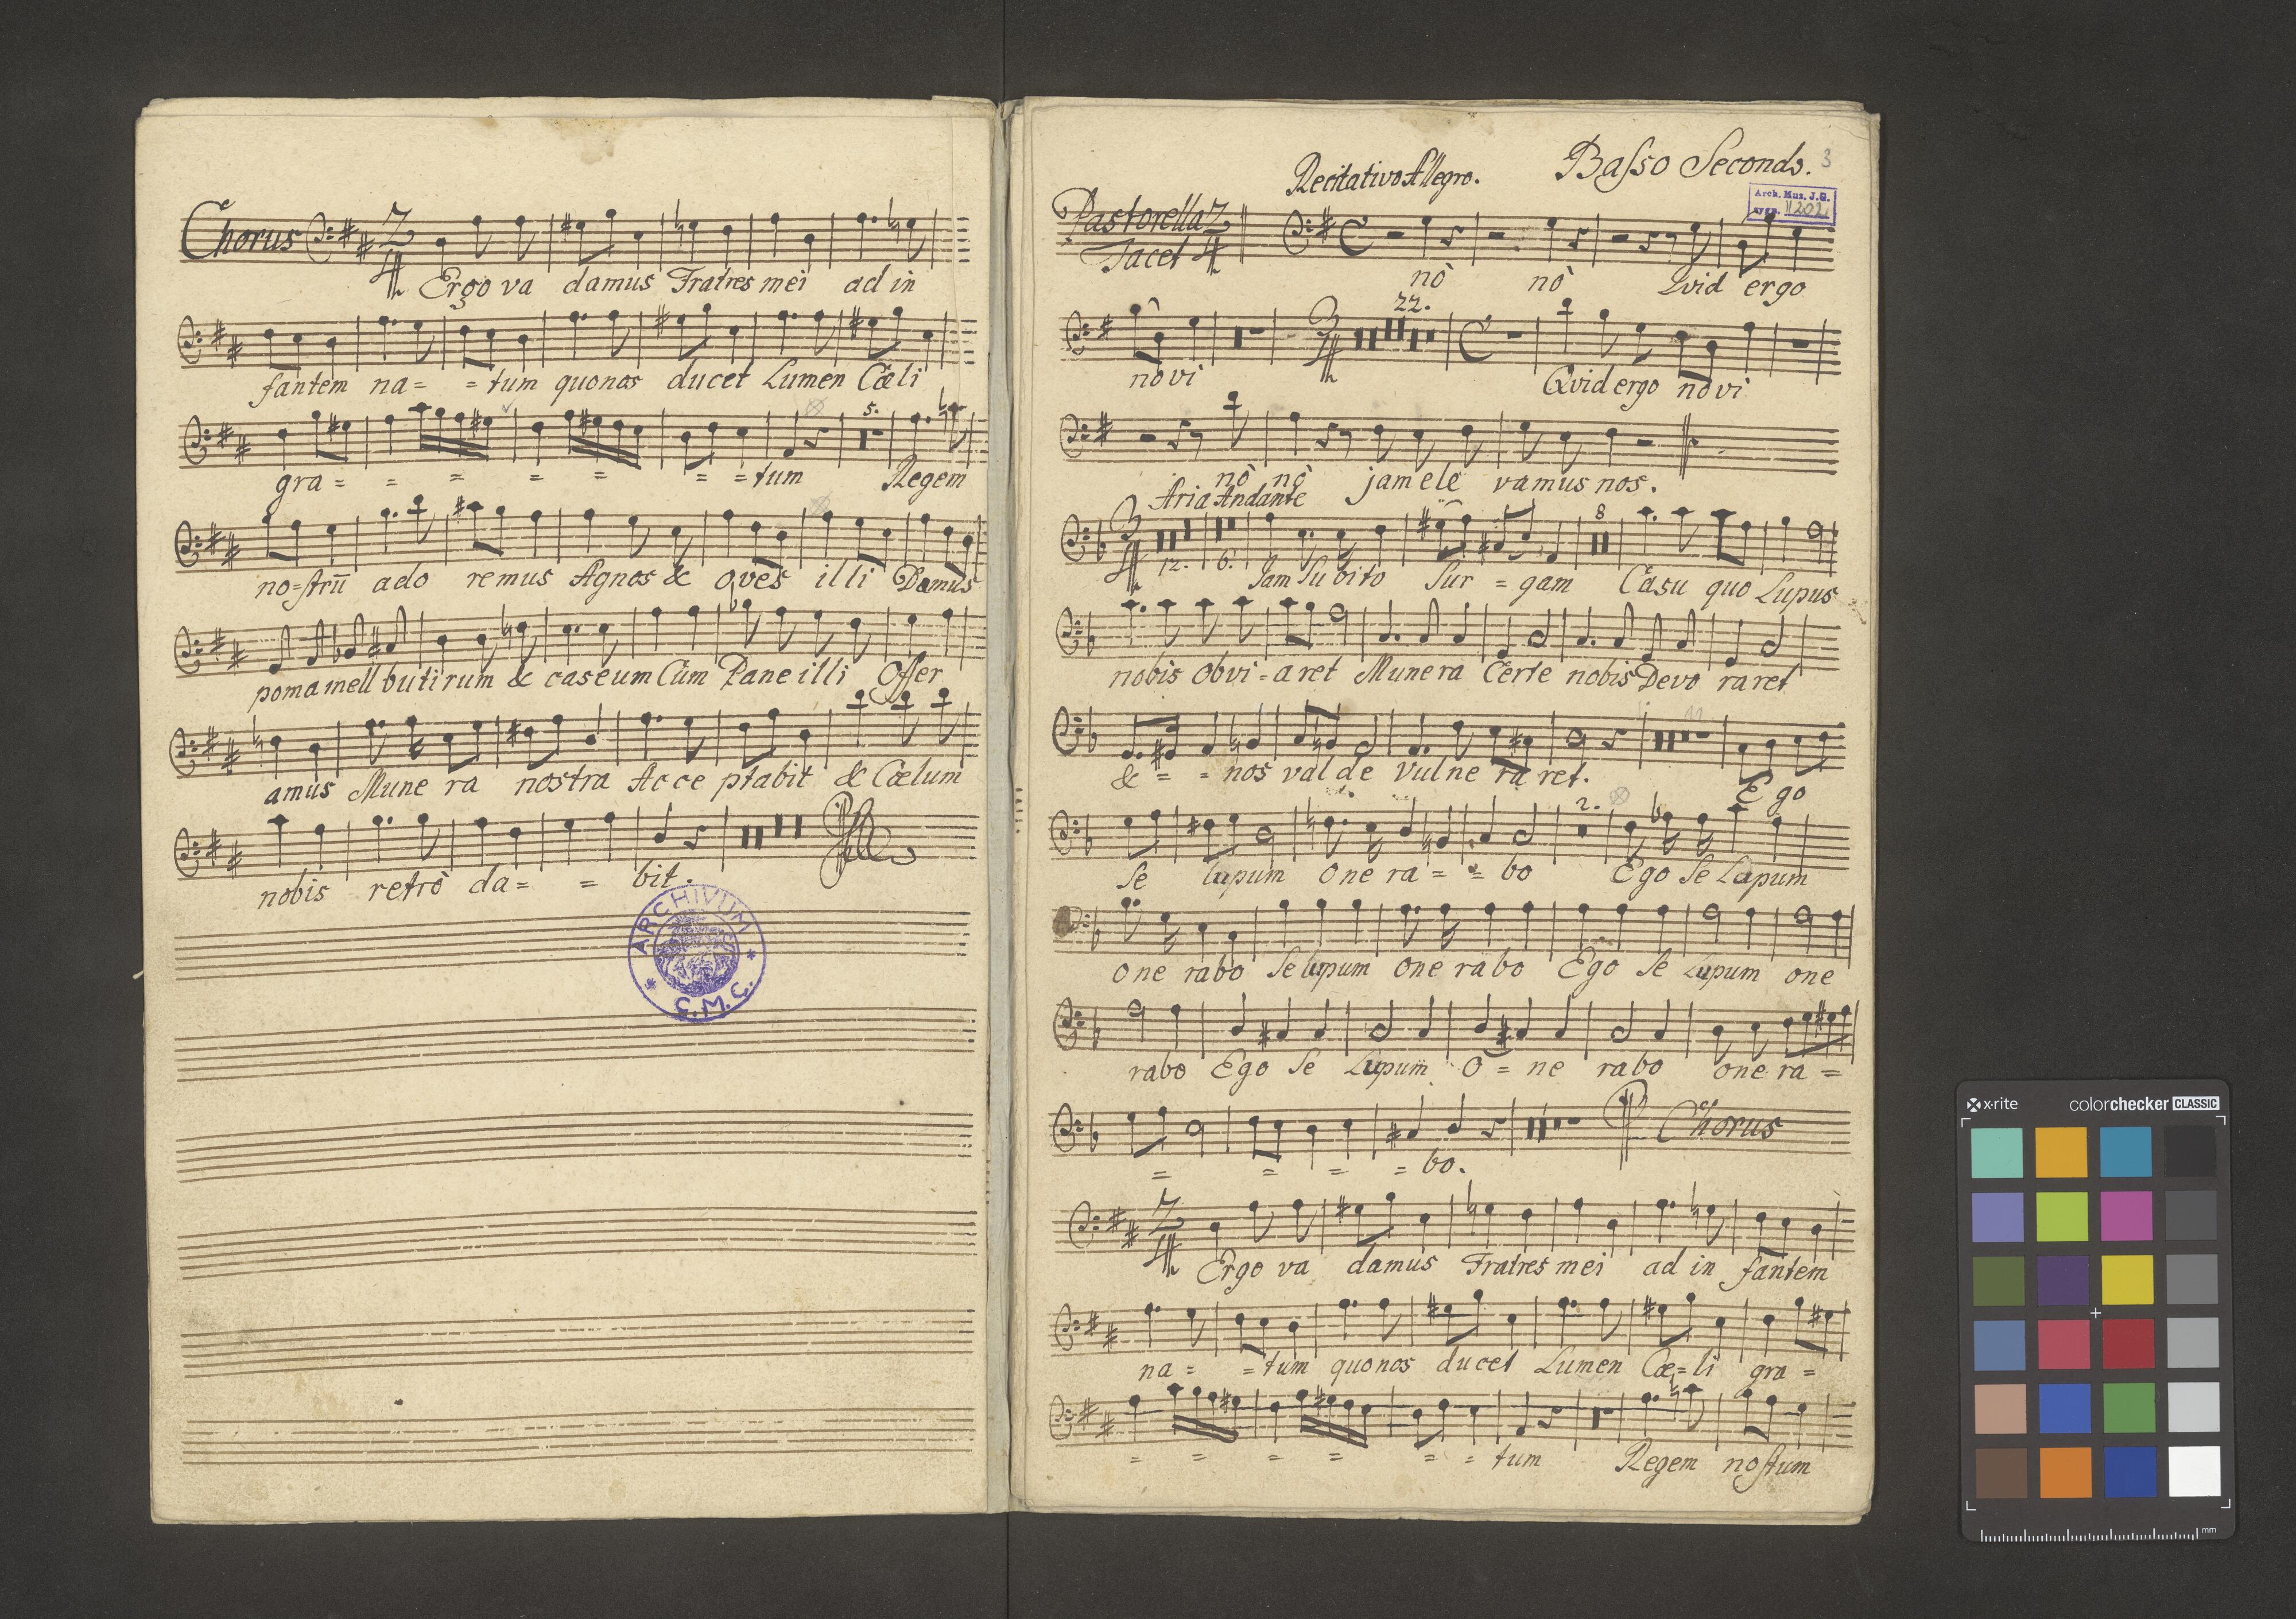 Chorus 2 4
Ergo va damus Fratres mei ad in
fantem na= =tum quo nos ducet Lumen Cœli
5.
gra= = = = = = =tum Regem
no=strũ ado remus Agnos & oves illi Damus
poma mell butirum & caseum Cum Pane illi Offer
amus Mune ra nostra Acce ptabit & Cœlum
nobis retrò da= = bit.
ARCHIVUM
C.M.C.
Basso Secondo. 3
Recitativo Allegro.
Arch. Mus. J.G.
sygn. II 202
Pastorella 2 4
Tacet
nò nò Qvid ergo
3 4 22.
novi Qvid ergo novi
nò nò jam ele vamus nos.
Aria Andante
3 4 12. 6. 8
Jam Subito Sur = gam Casu quo Lupus
nobis obvi = aret Munera Certe nobis Devo raret
& = = nos valde vulne ra ret. Ego
2.
se lupum one ra = = bo Ego se Lupum
one rabo se lupum one rabo Ego se Lupum one
rabo Ego se Lupum O = ne rabo one ra =
Chorus
= = = = bo.
2 4
Ergo va damus Fratres mei ad in fantem
na = =tum quo nos ducet Lumen Cœ=li gra =
= = = = = = tum Regem nostum
x·rite colorchecker CLASSIC
mm